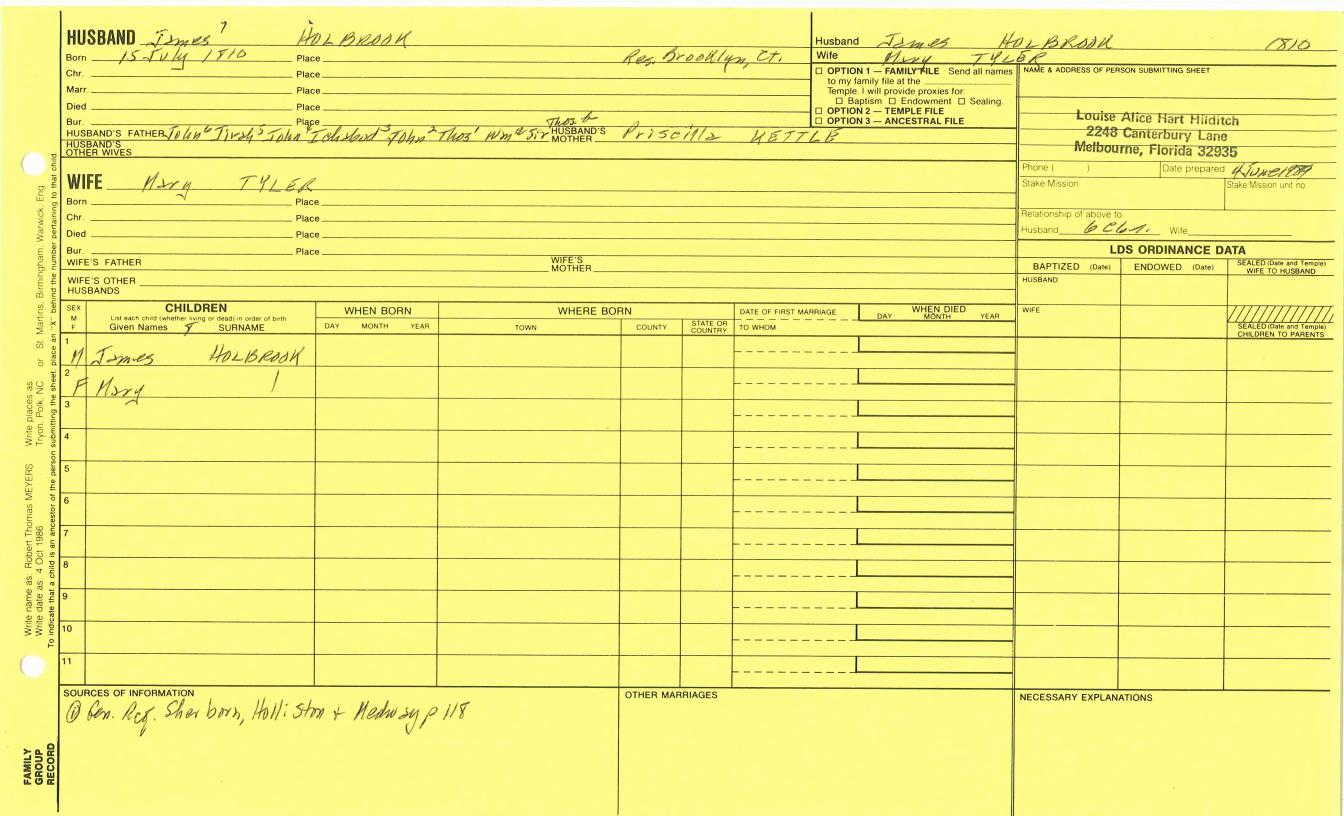 HUSBAND James 7 HOLBROOK
Born 15 July 1810 Place Res. Brooklyn, Ct.
Chr. Place
Marr. Place
Died Place
Bur. Place
HUSBAND'S FATHER John 6 5 John 4 3 John 2 Thos 1 Wm Sir Thos b HUSBAND'S MOTHER Priscilla KETTLE
HUSBAND'S OTHER WIVES
Husband James HOLBROOK 1810
Wife Mary TYLER
☐ OPTION 1 — FAMILY FILE Send all names
to my family file at the
Temple. I will provide proxies for
☐ Baptism ☐ Endowment ☐ Sealing.
☐ OPTION 2 — TEMPLE FILE
☐ OPTION 3 — ANCESTRAL FILE
NAME & ADDRESS OF PERSON SUBMITTING SHEET
Louise Alice Hart Hilditch
2248 Canterbury Lane
Melbourne, Florida 32935
Phone ( ) Date prepared 4 June 1989
Stake Mission Stake Mission unit no
Relationship of above to
Husband 6 C Wife
WIFE Mary TYLER
Born Place
Chr. Place
Died Place
Bur. Place
WIFE'S FATHER WIFE'S MOTHER
WIFE'S OTHER HUSBANDS
LDS ORDINANCE DATA
BAPTIZED (Date) ENDOWED (Date) SEALED (Date and Temple) WIFE TO HUSBAND
HUSBAND
WIFE
SEALED (Date and Temple) CHILDREN TO PARENTS
SEX M F
CHILDREN
List each child (whether living or dead) in order of birth
Given Names SURNAME
WHEN BORN
DAY MONTH YEAR
WHERE BORN
TOWN COUNTY STATE OR COUNTRY
DATE OF FIRST MARRIAGE
TO WHOM
WHEN DIED
DAY MONTH YEAR
1 M James HOLBROOK
2 F Mary
3
4
5
6
7
8
9
10
11
SOURCES OF INFORMATION
① Gen. Reg. Sherborn, Holliston & Medway p 118
OTHER MARRIAGES
NECESSARY EXPLANATIONS
Write name as: Robert Thomas MEYERS Write places as
Write date as: 4 Oct 1986 Tryon, Polk, NC or St. Martins, Birmingham, Warwick, Eng
To indicate that a child is an ancestor of the person submitting the sheet, place an "X" behind the number pertaining to that child
FAMILY GROUP RECORD